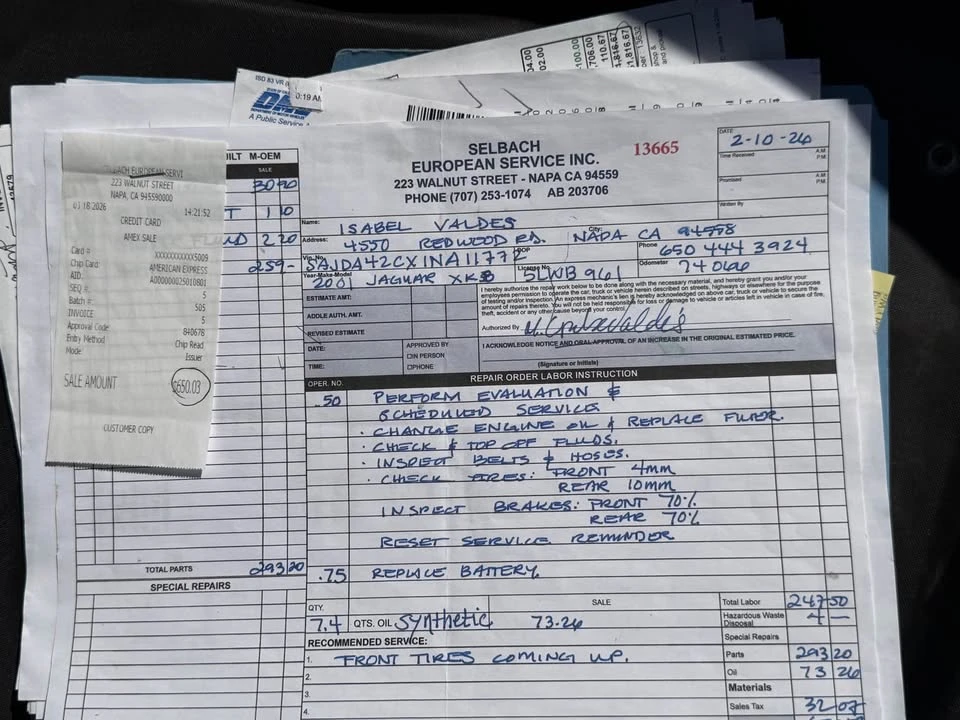 SELBACH
EUROPEAN SERVICE INC.
223 WALNUT STREET - NAPA CA 94559
PHONE (707) 253-1074 AB 203706
13665
DATE
2-10-26
Time Received
A.M.
P.M.
Promised
A.M.
P.M.
Written By
A Public Service
M-OEM
SALE
30 90
1 10
2 20
259-
TOTAL PARTS 293 20
SPECIAL REPAIRS
223 WALNUT STREET
NAPA, CA 945590000
2026 14:21:52
CREDIT CARD
AMEX SALE
Card # XXXXXXXXXXX5009
Chip Card: AMERICAN EXPRESS
AID: A000000025010801
SEQ #: 5
Batch #: 505
INVOICE 5
Approval Code: 840678
Entry Method Chip Read
Mode: Issuer
SALE AMOUNT $650.03
CUSTOMER COPY
Name: ISABEL VALDES
Address: 4550 REDWOOD RD. City: NAPA CA 94558
Vin. No. SAJDA42CX1NA11772
Phone 650 444 3924
Year-Make-Model 2001 JAGUAR XK8
License No. 5LWB961
Odometer 74066
I hereby authorize the repair work below to be done along with the necessary material, and hereby grant you and/or your
employees permission to operate the car, truck or vehicle herein described on streets, highways or elsewhere for the purpose
of testing and/or inspection. An express mechanic's lien is hereby acknowledged on above car, truck or vehicle to secure the
amount of repairs thereto. You will not be held responsible for loss or damage to vehicle or articles left in vehicle in case of fire,
theft, accident or any other cause beyond your control.
Authorized By
ESTIMATE AMT:
ADDLE AUTH. AMT.
REVISED ESTIMATE
DATE:
TIME:
APPROVED BY
IN PERSON
PHONE
I ACKNOWLEDGE NOTICE AND ORAL APPROVAL OF AN INCREASE IN THE ORIGINAL ESTIMATED PRICE.
(Signature or Initials)
OPER. NO. REPAIR ORDER LABOR INSTRUCTION
.50 PERFORM EVALUATION &
SCHEDULED SERVICE
· CHANGE ENGINE OIL & REPLACE FILTER.
· CHECK & TOP OFF FLUIDS.
· INSPECT BELTS & HOSES.
· CHECK TIRES: FRONT 4mm
REAR 10mm
INSPECT BRAKES: FRONT 70%
REAR 70%
RESET SERVICE REMINDER
.75 REPLACE BATTERY.
QTY. SALE
7.4 QTS. OIL Synthetic 73.26
RECOMMENDED SERVICE:
1. FRONT TIRES COMING UP.
2.
3.
4.
Total Labor 247 50
Hazardous Waste
Disposal 4 —
Special Repairs
Parts 293 20
Oil 73 26
Materials
Sales Tax 32 07